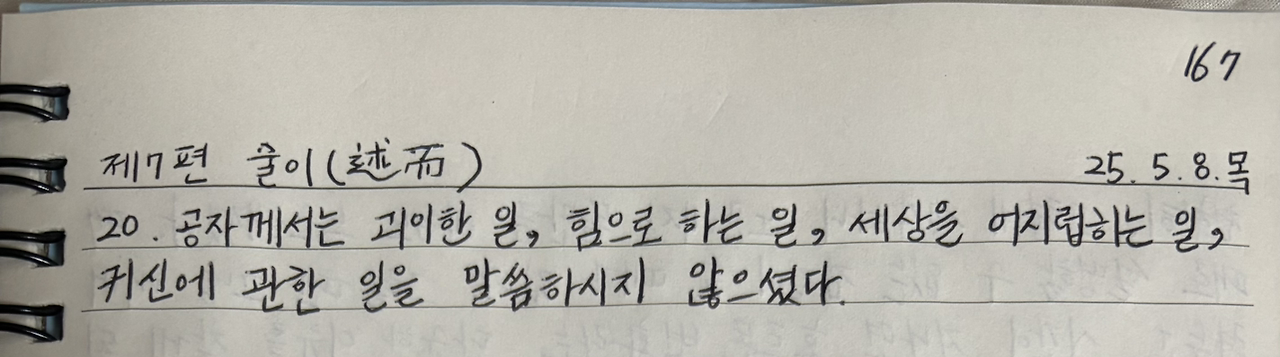 167
제7편 술이(述而) 25. 5. 8. 목
20. 공자께서는 괴이한 일, 힘으로 하는 일, 세상을 어지럽히는 일,
귀신에 관한 일을 말씀하시지 않으셨다.